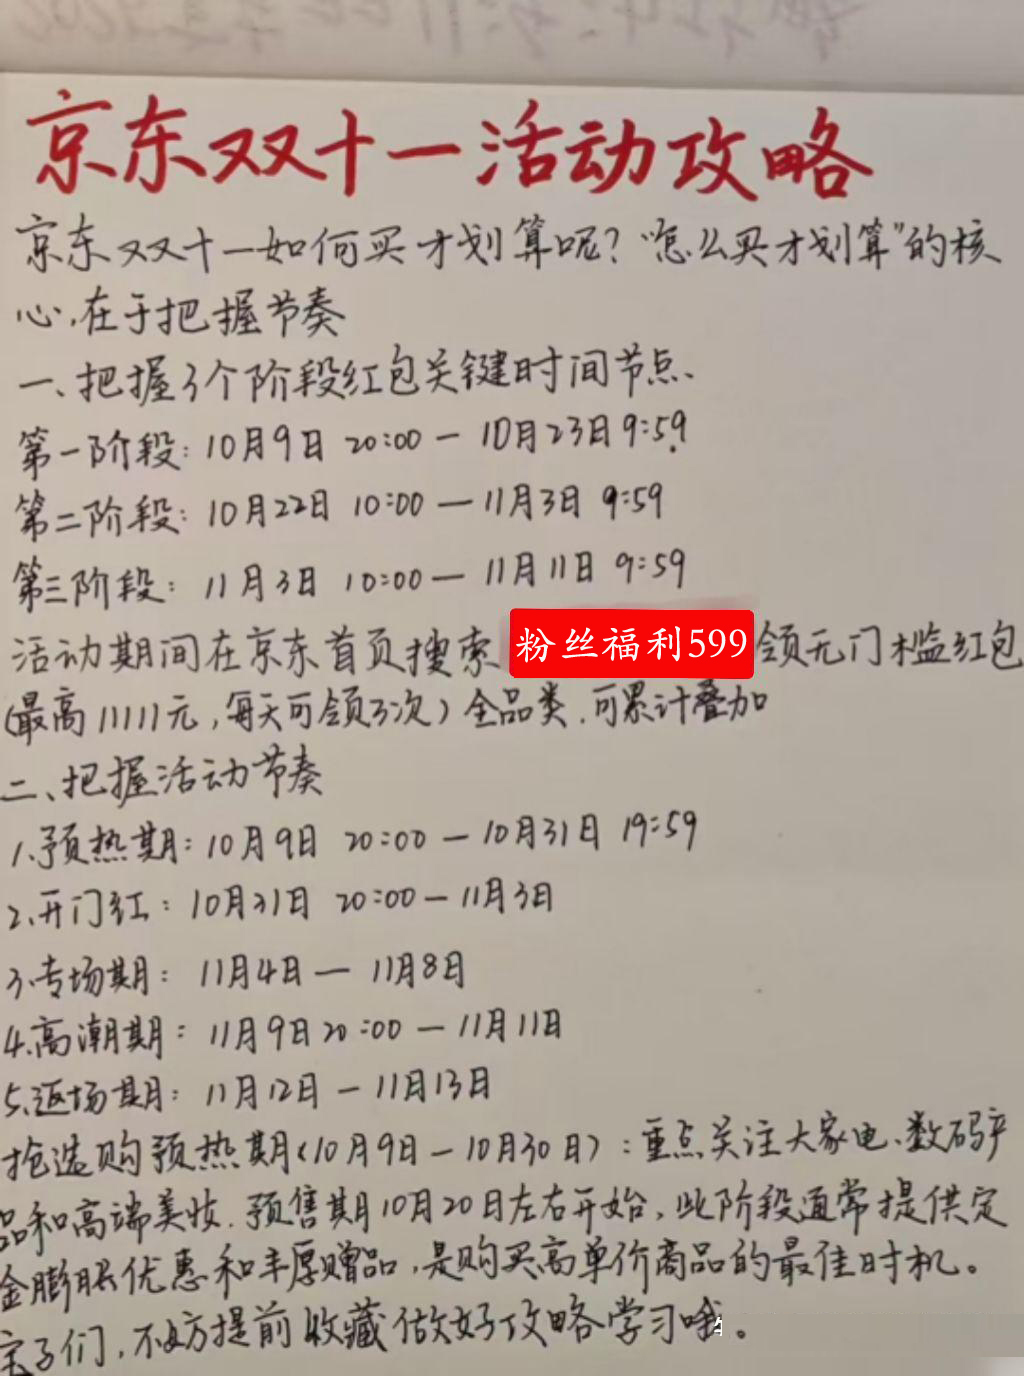 京东双十一活动攻略
京东双双十一如何买才划算呢?“怎么买才划算”的核
心,在于把握节奏
一、把握3个阶段红包关键时间节点、
第一阶段:10月9日 20:00—10月23日9:59
第二阶段:10月22日 10:00—11月3日 9:59
第三阶段:11月3日 10:00—11月11日 9:59
活动期间在京东首页搜索 粉丝福利599 领无门槛红包
(最高11111元,每天可领3次)全品类,可累计叠加
二、把握活动节奏
1.预热期:10月9日 20:00—10月31日 19:59
2.开门红:10月31日 20:00—11月3日
3.专场期:11月4日—11月8日
4.高潮期:11月9日20:00—11月11日
5.返场期:11月12日—11月13日
抢选购预热期(10月9日—10月30日):重点关注大家电、数码产
品和高端美妆.预售期10月20日左右开始,此阶段通常提供定
金膨胀优惠和丰厚赠品,是购买高单价商品的最佳时机。
宝子们,不妨提前收藏做好攻略学习哦。